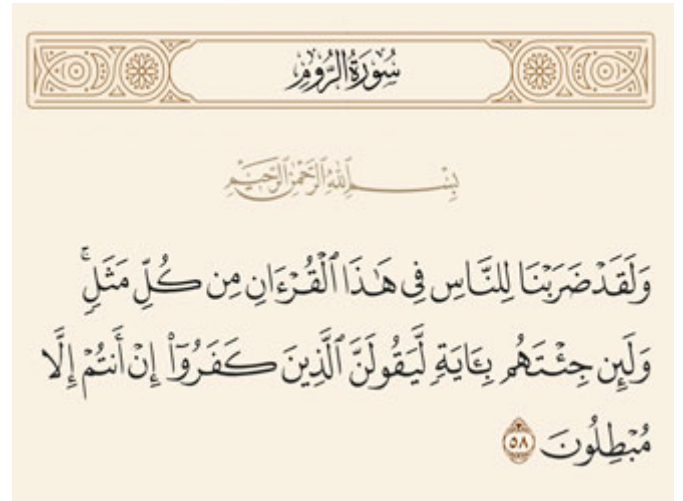 سُورَةُ الرُّومِ
بِسْمِ ٱللَّهِ ٱلرَّحْمَٰنِ ٱلرَّحِيمِ
وَلَقَدْ ضَرَبْنَا لِلنَّاسِ فِى هَٰذَا ٱلْقُرْءَانِ مِن كُلِّ مَثَلٍۚ
وَلَئِن جِئْتَهُم بِـَٔايَةٍ لَّيَقُولَنَّ ٱلَّذِينَ كَفَرُوٓا۟ إِنْ أَنتُمْ إِلَّا
مُبْطِلُونَ ٥٨